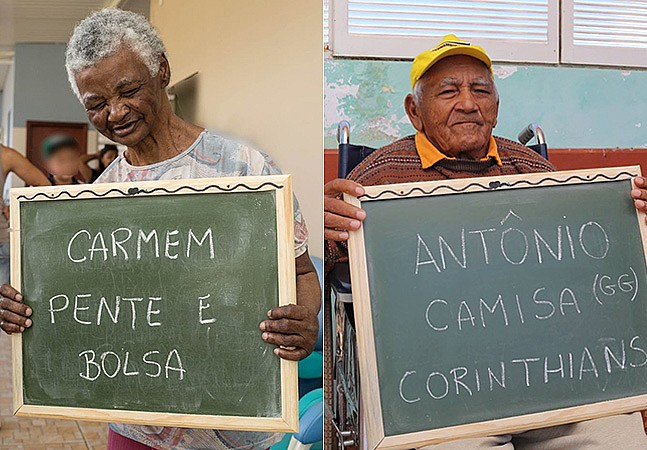 CARMEM
PENTE E
BOLSA
ANTÔNIO
CAMISA (GG)
CORINTHIANS